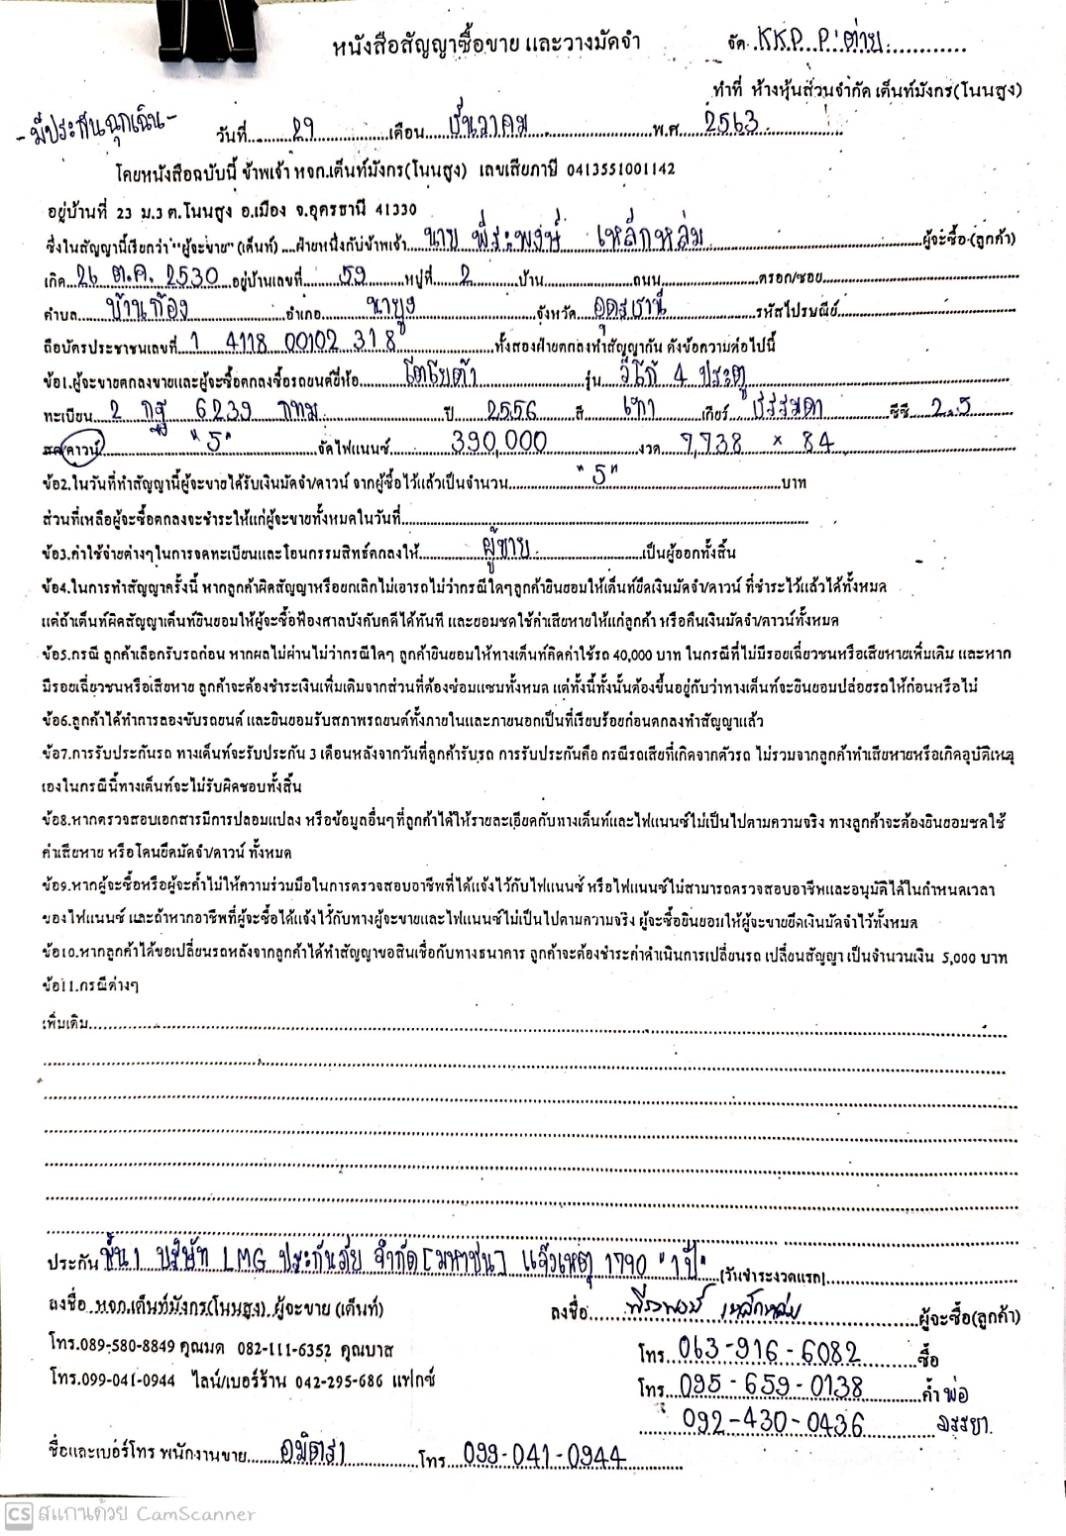 หนังสือสัญญาซื้อขาย และวางมัดจำ
จัด KKP P'ต่าย
ทำที่ ห้างหุ้นส่วนจำกัด เต็นท์มังกร(โนนสูง)
-มีประกันฉุกเฉิน-
วันที่ 29 เดือน ธันวาคม พ.ศ 2563
โดยหนังสือฉบับนี้ ข้าพเจ้า หจก.เต็นท์มังกร(โนนสูง) เลขเสียภาษี 0413551001142
อยู่บ้านที่ 23 ม.3 ต.โนนสูง อ.เมือง จ.อุดรธานี 41330
ซึ่งในสัญญานี้เรียกว่า "ผู้จะขาย" (เต็นท์) ฝ่ายหนึ่งกับข้าพเจ้า นาย พีระพงษ์ เหล็กหล่ม ผู้จะซื้อ (ลูกค้า)
เกิด 26 ต.ค. 2530 อยู่บ้านเลขที่ 59 หมู่ที่ 2 บ้าน ถนน ตรอก/ซอย
ตำบล บ้านก้อง อำเภอ นายูง จังหวัด อุดรธานี รหัสไปรษณีย์
ถือบัตรประชาชนเลขที่ 1 4118 00102 318 ทั้งสองฝ่ายตกลงทำสัญญากัน ดังข้อความต่อไปนี้
ข้อ1.ผู้จะขายตกลงขายและผู้จะซื้อตกลงซื้อรถยนต์ยี่ห้อ โตโยต้า รุ่น วีโก้ 4 ประตู
ทะเบียน 2 กฐ 6239 กทม ปี 2556 สี เทา เกียร์ ธรรมดา ซีซี 2.5
สด/ดาวน์ "5" จัดไฟแนนซ์ 390,000 งวด 7,738 × 84
ข้อ2.ในวันที่ทำสัญญานี้ผู้จะขายได้รับเงินมัดจำ/ดาวน์ จากผู้ซื้อไว้แล้วเป็นจำนวน "5" บาท
ส่วนที่เหลือผู้จะซื้อตกลงจะชำระให้แก่ผู้จะขายทั้งหมดในวันที่
ข้อ3.ค่าใช้จ่ายต่างๆในการจดทะเบียนและโอนกรรมสิทธิ์ตกลงให้ ผู้ขาย เป็นผู้ออกทั้งสิ้น
ข้อ4.ในการทำสัญญาครั้งนี้ หากลูกค้าผิดสัญญาหรือยกเลิกไม่เอารถไม่ว่ากรณีใดๆลูกค้ายินยอมให้เต็นท์ยึดเงินมัดจำ/ดาวน์ ที่ชำระไว้แล้วได้ทั้งหมด
แต่ถ้าเต็นท์ผิดสัญญาเต็นท์ยินยอมให้ผู้จะซื้อฟ้องศาลบังคับคดีได้ทันที และยอมชดใช้ค่าเสียหายให้แก่ลูกค้า หรือคืนเงินมัดจำ/ดาวน์ทั้งหมด
ข้อ5.กรณี ลูกค้าเลือกรับรถก่อน หากผลไม่ผ่านไม่ว่ากรณีใดๆ ลูกค้ายินยอมให้ทางเต็นท์คิดค่าใช้รถ 40,000 บาท ในกรณีที่ไม่มีรอยเฉี่ยวชนหรือเสียหายเพิ่มเติม และหาก
มีรอยเฉี่ยวชนหรือเสียหาย ลูกค้าจะต้องชำระเงินเพิ่มเติมจากส่วนที่ต้องซ่อมแซมทั้งหมด แต่ทั้งนี้ทั้งนั้นต้องขึ้นอยู่กับว่าทางเต็นท์จะยินยอมปล่อยรถให้ก่อนหรือไม่
ข้อ6.ลูกค้าได้ทำการลองขับรถยนต์ และยินยอมรับสภาพรถยนต์ทั้งภายในและภายนอกเป็นที่เรียบร้อยก่อนตกลงทำสัญญาแล้ว
ข้อ7.การรับประกันรถ ทางเต็นท์จะรับประกัน 3 เดือนหลังจากวันที่ลูกค้ารับรถ การรับประกันคือ กรณีรถเสียที่เกิดจากตัวรถ ไม่รวมจากลูกค้าทำเสียหายหรือเกิดอุบัติเหตุ
เองในกรณีนี้ทางเต็นท์จะไม่รับผิดชอบทั้งสิ้น
ข้อ8.หากตรวจสอบเอกสารมีการปลอมแปลง หรือข้อมูลอื่นๆที่ลูกค้าได้ให้รายละเอียดกับทางเต็นท์และไฟแนนซ์ไม่เป็นไปตามความจริง ทางลูกค้าจะต้องยินยอมชดใช้
ค่าเสียหาย หรือโดนยึดมัดจำ/ดาวน์ ทั้งหมด
ข้อ9.หากผู้จะซื้อหรือผู้จะค้ำไม่ให้ความร่วมมือในการตรวจสอบอาชีพที่ได้แจ้งไว้กับไฟแนนซ์ หรือไฟแนนซ์ไม่สามารถตรวจสอบอาชีพและอนุมัติได้ในกำหนดเวลา
ของไฟแนนซ์ และถ้าหากอาชีพที่ผู้จะซื้อได้แจ้งไว้กับทางผู้จะขายและไฟแนนซ์ไม่เป็นไปตามความจริง ผู้จะซื้อยินยอมให้ผู้จะขายยึดเงินมัดจำไว้ทั้งหมด
ข้อ10.หากลูกค้าได้ขอเปลี่ยนรถหลังจากลูกค้าได้ทำสัญญาขอสินเชื่อกับทางธนาคาร ลูกค้าจะต้องชำระค่าดำเนินการเปลี่ยนรถ เปลี่ยนสัญญา เป็นจำนวนเงิน 5,000 บาท
ข้อ11.กรณีต่างๆ
เพิ่มเติม
ประกัน ชั้น1 บริษัท LMG ประกันภัย จำกัด [มหาชน] แจ้งเหตุ 1790 "1ปี" (วันชำระงวดแรก)
ลงชื่อ หจก.เต็นท์มังกร(โนนสูง) ผู้จะขาย (เต็นท์)
ลงชื่อ พีระพงษ์ เหล็กหล่ม ผู้จะซื้อ(ลูกค้า)
โทร.089-580-8849 คุณมด 082-111-6352 คุณบาส
โทร 063-916-6082 ซื้อ
โทร.099-041-0944 ไลน์/เบอร์ร้าน 042-295-686 แฟกซ์
โทร 095-659-0138 ค้ำ พ่อ
092-430-0436 ภรรยา.
ชื่อและเบอร์โทร พนักงานขาย อมิตรา โทร 099-041-0944
CS สแกนด้วย CamScanner